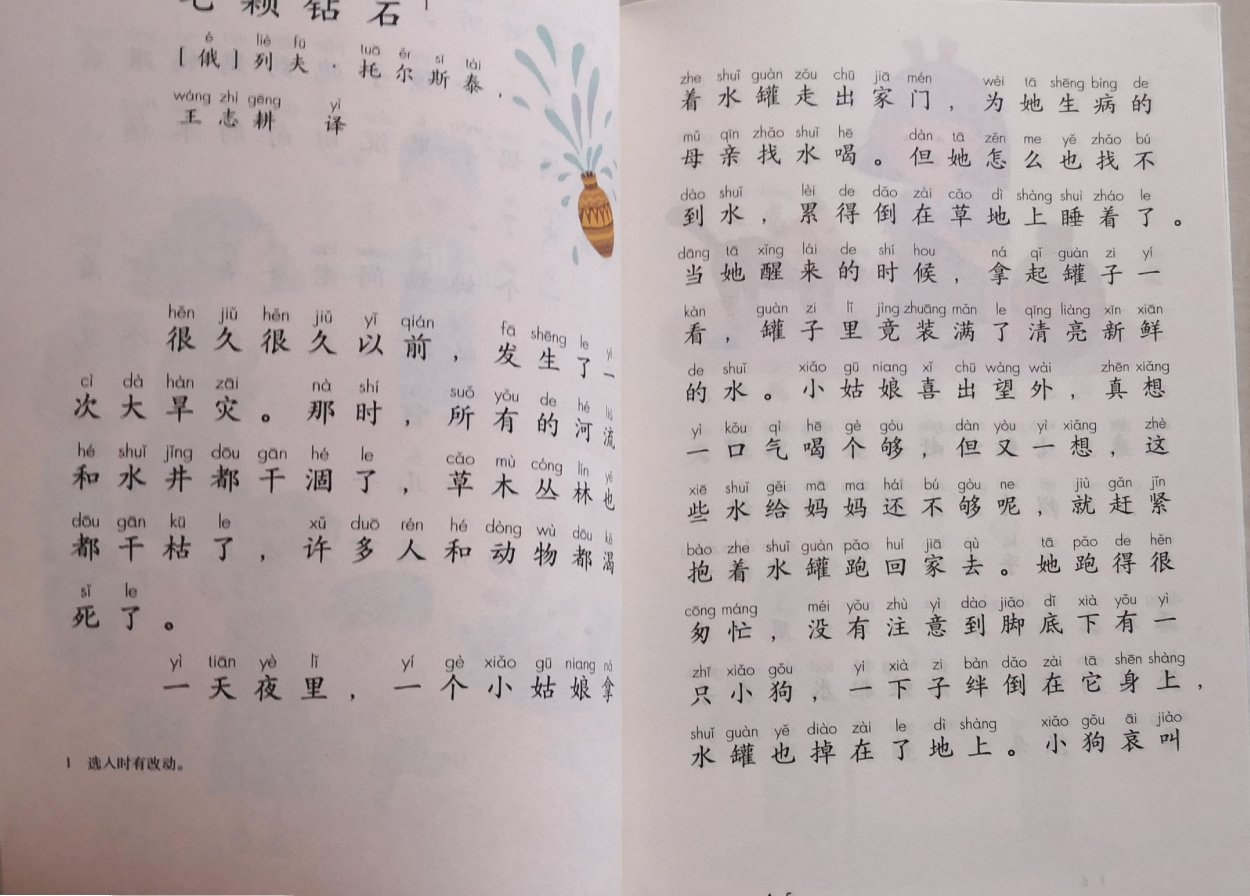 七颗钻石1
é liè fū tuō ěr sī tài
[俄]列夫·托尔斯泰,
wáng zhì gēng yì
王志耕 译
hěn jiǔ hěn jiǔ yǐ qián fā shēng le yí
很久很久以前,发生了一
cì dà hàn zāi nà shí suǒ yǒu de hé liú
次大旱灾。那时,所有的河流
hé shuǐ jǐng dōu gān hé le cǎo mù cóng lín yě
和水井都干涸了,草木丛林也
dōu gān kū le xǔ duō rén hé dòng wù dōu kě
都干枯了,许多人和动物都渴
sǐ le
死了。
yì tiān yè lǐ yí gè xiǎo gū niang ná
一天夜里,一个小姑娘拿
1 选入时有改动。
zhe shuǐ guàn zǒu chū jiā mén wèi tā shēng bìng de
着水罐走出家门,为她生病的
mǔ qīn zhǎo shuǐ hē dàn tā zěn me yě zhǎo bú
母亲找水喝。但她怎么也找不
dào shuǐ lèi de dǎo zài cǎo dì shàng shuì zháo le
到水,累得倒在草地上睡着了。
dāng tā xǐng lái de shí hou ná qǐ guàn zi yí
当她醒来的时候,拿起罐子一
kàn guàn zi lǐ jìng zhuāng mǎn le qīng liàng xīn xiān
看,罐子里竟装满了清亮新鲜
de shuǐ xiǎo gū niang xǐ chū wàng wài zhēn xiǎng
的水。小姑娘喜出望外,真想
yì kǒu qì hē gè gòu dàn yòu yì xiǎng zhè
一口气喝个够,但又一想,这
xiē shuǐ gěi mā ma hái bú gòu ne jiù gǎn jǐn
些水给妈妈还不够呢,就赶紧
bào zhe shuǐ guàn pǎo huí jiā qù tā pǎo de hěn
抱着水罐跑回家去。她跑得很
cōng máng méi yǒu zhù yì dào jiǎo dǐ xià yǒu yì
匆忙,没有注意到脚底下有一
zhī xiǎo gǒu yí xià zi bàn dǎo zài tā shēn shàng
只小狗,一下子绊倒在它身上,
shuǐ guàn yě diào zài le dì shàng xiǎo gǒu āi jiào
水罐也掉在了地上。小狗哀叫